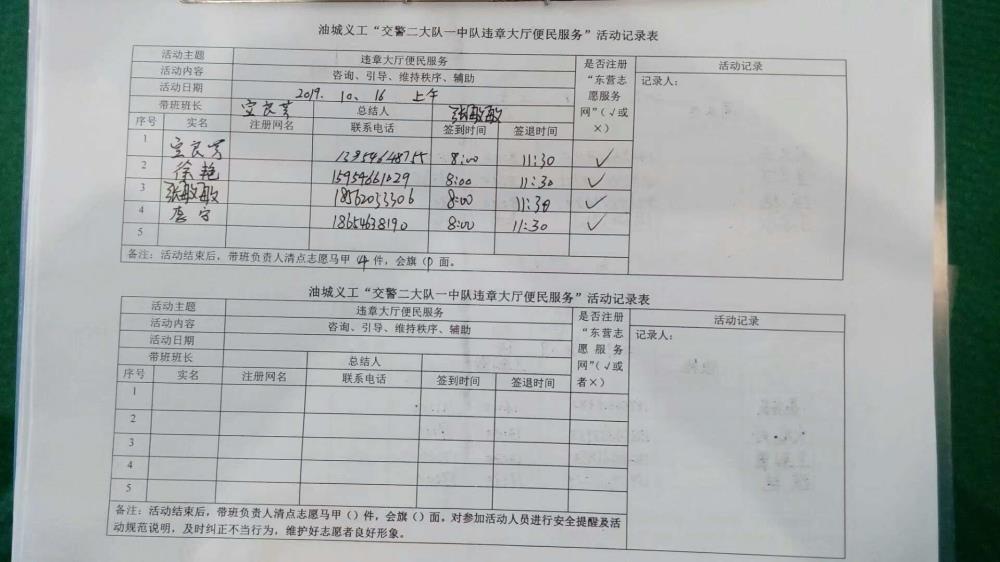 油城义工“交警二大队一中队违章大厅便民服务”活动记录表
活动主题 违章大厅便民服务 是否注册“东营志愿服务网”（√或×） 活动记录
活动内容 咨询、引导、维持秩序、辅助 记录人：
活动日期 2019. 10. 16 上午
带班班长 宣良芳 总结人 张敏敏
序号 实名 注册网名 联系电话 签到时间 签退时间
1 宣良芳 13954648755 8:00 11:30 √
2 徐艳 15954661029 8:00 11:30 √
3 张敏敏 18562053306 8:00 11:30 √
4 唐宁 18654638190 8:00 11:30 √
5
备注：活动结束后，带班负责人清点志愿马甲（4件，会旗（）面。
油城义工“交警二大队一中队违章大厅便民服务”活动记录表
活动主题 违章大厅便民服务 是否注册“东营志愿服务网”（√或者×） 活动记录
活动内容 咨询、引导、维持秩序、辅助 记录人：
活动日期
带班班长 总结人
序号 实名 注册网名 联系电话 签到时间 签退时间
1
2
3
4
5
备注：活动结束后，带班负责人清点志愿马甲（）件，会旗（）面。对参加活动人员进行安全提醒及活
动规范说明，及时纠正不当行为，维护好志愿者良好形象。